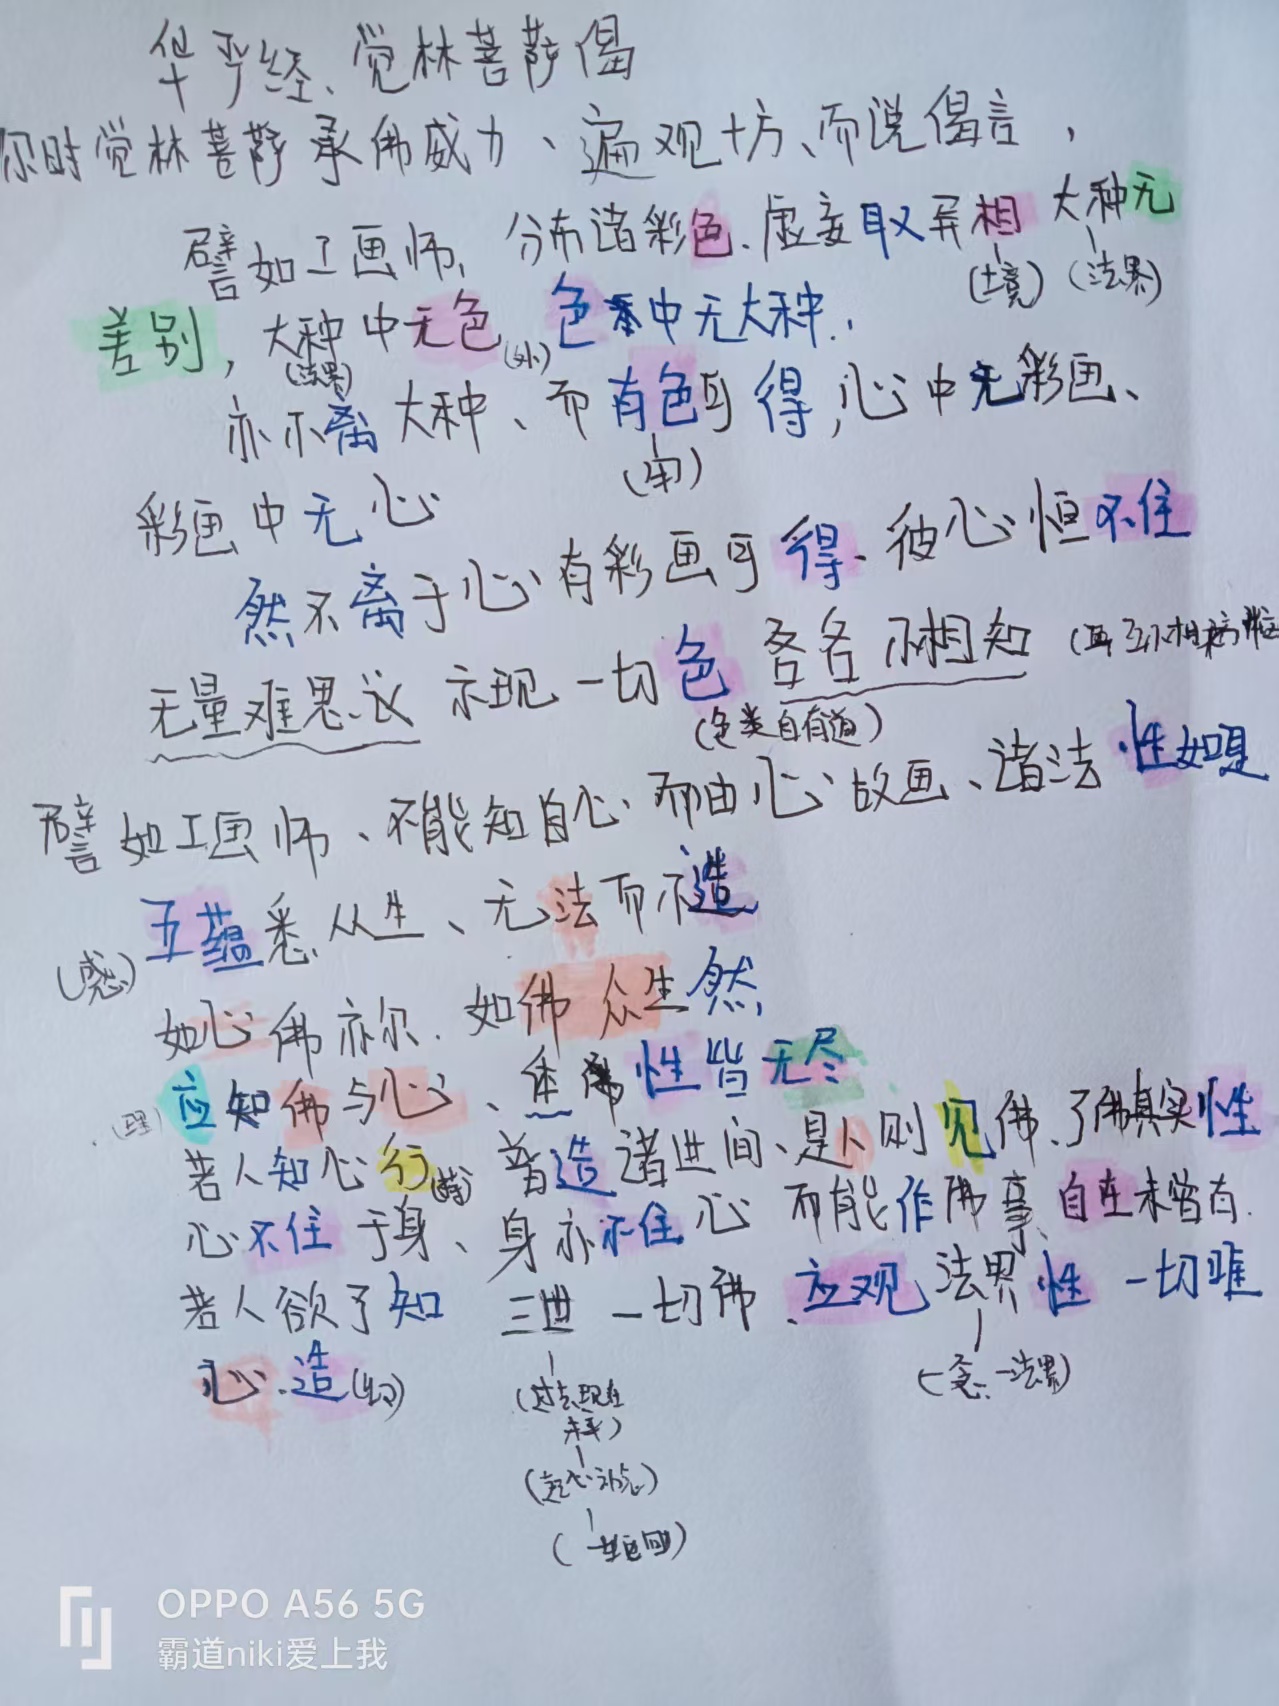 华严经、觉林菩萨偈
尔时觉林菩萨承佛威力、遍观十方、而说偈言,
譬如工画师, 分布诸彩色、虚妄取异相 大种无
(境) (法界)
差别, 大种中无色 色中无大种.
(法界) (外)
亦不离大种、而有色可得, 心中无彩画、
(用)
彩画中无心
然不离于心、有彩画可得、彼心恒不住
无量难思议 示现一切色 各各不相知
(色类自有道)
譬如工画师、不能知自心、而由心故画、诸法性如是
五蕴悉从生、无法而不造
(惑)
如心佛亦尔. 如佛众生然,
应知佛与心、体 性皆无尽
(理)
若人知心行 普造诸世间、是人则见佛、了佛真实性
心不住于身、身亦不住心 而能作佛事、自在未曾有.
若人欲了知 三世一切佛、应观法界性 一切唯
心造 (过去现在 (一念一法界)
未来)
(起心动念)
OPPO A56 5G
霸道niki爱上我